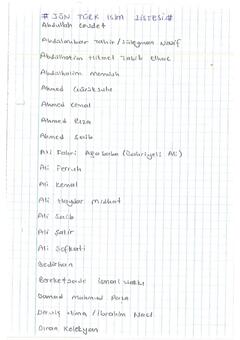 # JÖN TÜRK ISIM LİSTESİ #
Abdullah Cevdet
Abdülekber Tahir / Süleyman Nazif
Abdülhekim Hikmet
Abdülhalim Memduh
Ahmed
Ahmed Kemal
Ahmed Rıza
Ahmed Saib
Ali Fahri Ağababa (Bahriyeli Ali)
Ali Ferruh
Ali Kemal
Ali Haydar Midhat
Ali Saib
Ali Şakir
Ali Şefkati
Bedirhan
Bereketzade İsmail Hakkı
Damad Mahmud Paşa
Derviş Hima / İbrahim Naci
Diran Kelekyan